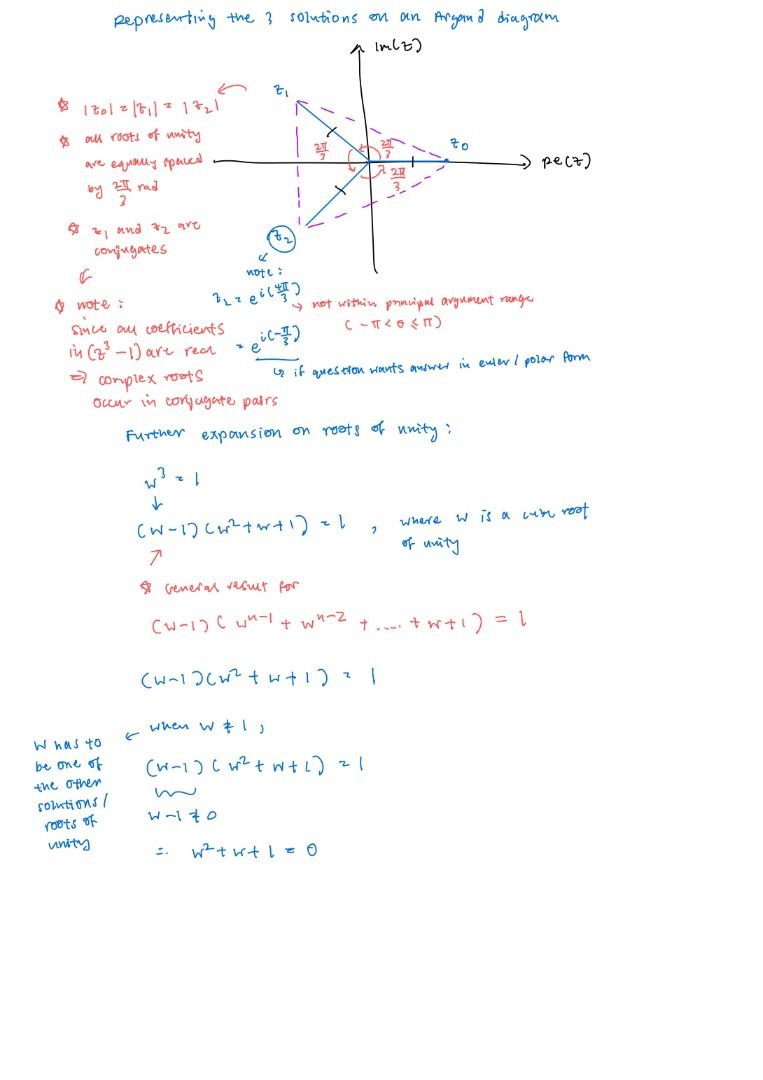 Representing the 3 solutions on an Argand diagram
Im(z)
Re(z)
z₁
z₀
z₂
2π/3
2π/3
2π/3
* |z₀| = |z₁| = |z₂|
* all roots of unity
are equally spaced
by 2π/3 rad
* z₁ and z₂ are
conjugates
* note :
since all coefficients
in (z³ - 1) are real
⇒ complex roots
occur in conjugate pairs
note :
z₂ = e^i(4π/3)
→ not within principal argument range
( - π < θ ≤ π)
= e^i(-π/3)
↳ if question wants answer in euler / polar form
Further expansion on roots of unity :
w³ = 1
↓
(w-1)(w²+w+1) = 1 , where w is a cube root
of unity
* General result for
(w-1)( w^n-1 + w^n-2 + ..... + w+1 ) = 1
(w-1)(w² + w + 1) = 1
← when w ≠ 1 ,
w has to
be one of
the other
solutions /
roots of
unity
(w-1) ( w² + w + 1) = 1
w - 1 ≠ 0
∴ w² + w + 1 = 0